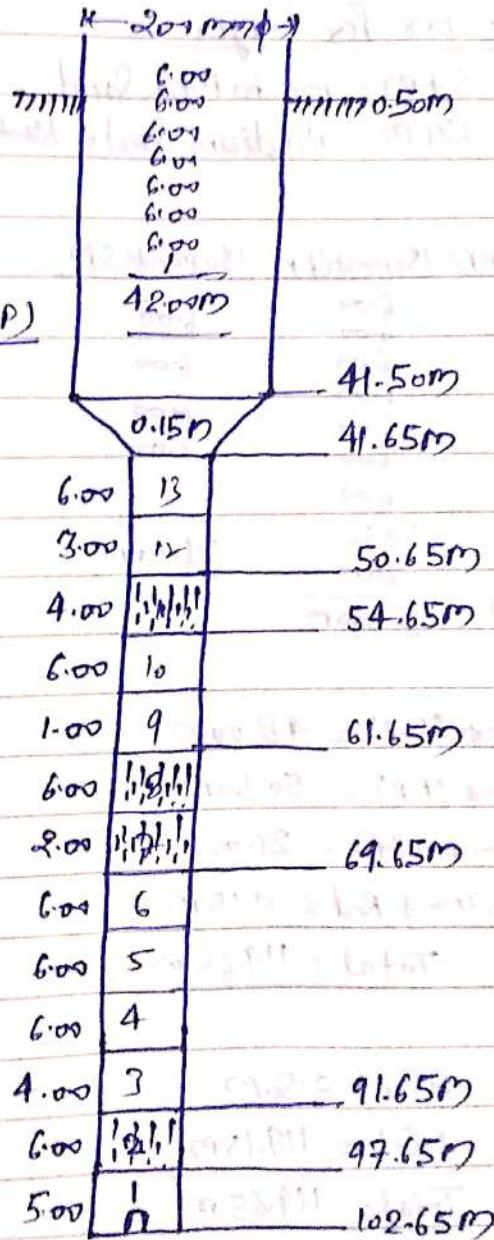 200 mmφ
6.00
6.00 0.50m
6.00
6.00
6.00
6.00
6.00
42.00m
P)
41.50m
0.15m 41.65m
6.00 13
3.00 12 50.65m
4.00 54.65m
6.00 10
1.00 9 61.65m
6.00 8
2.00 7 69.65m
6.00 6
6.00 5
6.00 4
4.00 3 91.65m
6.00 2 97.65m
5.00 1 102.65m